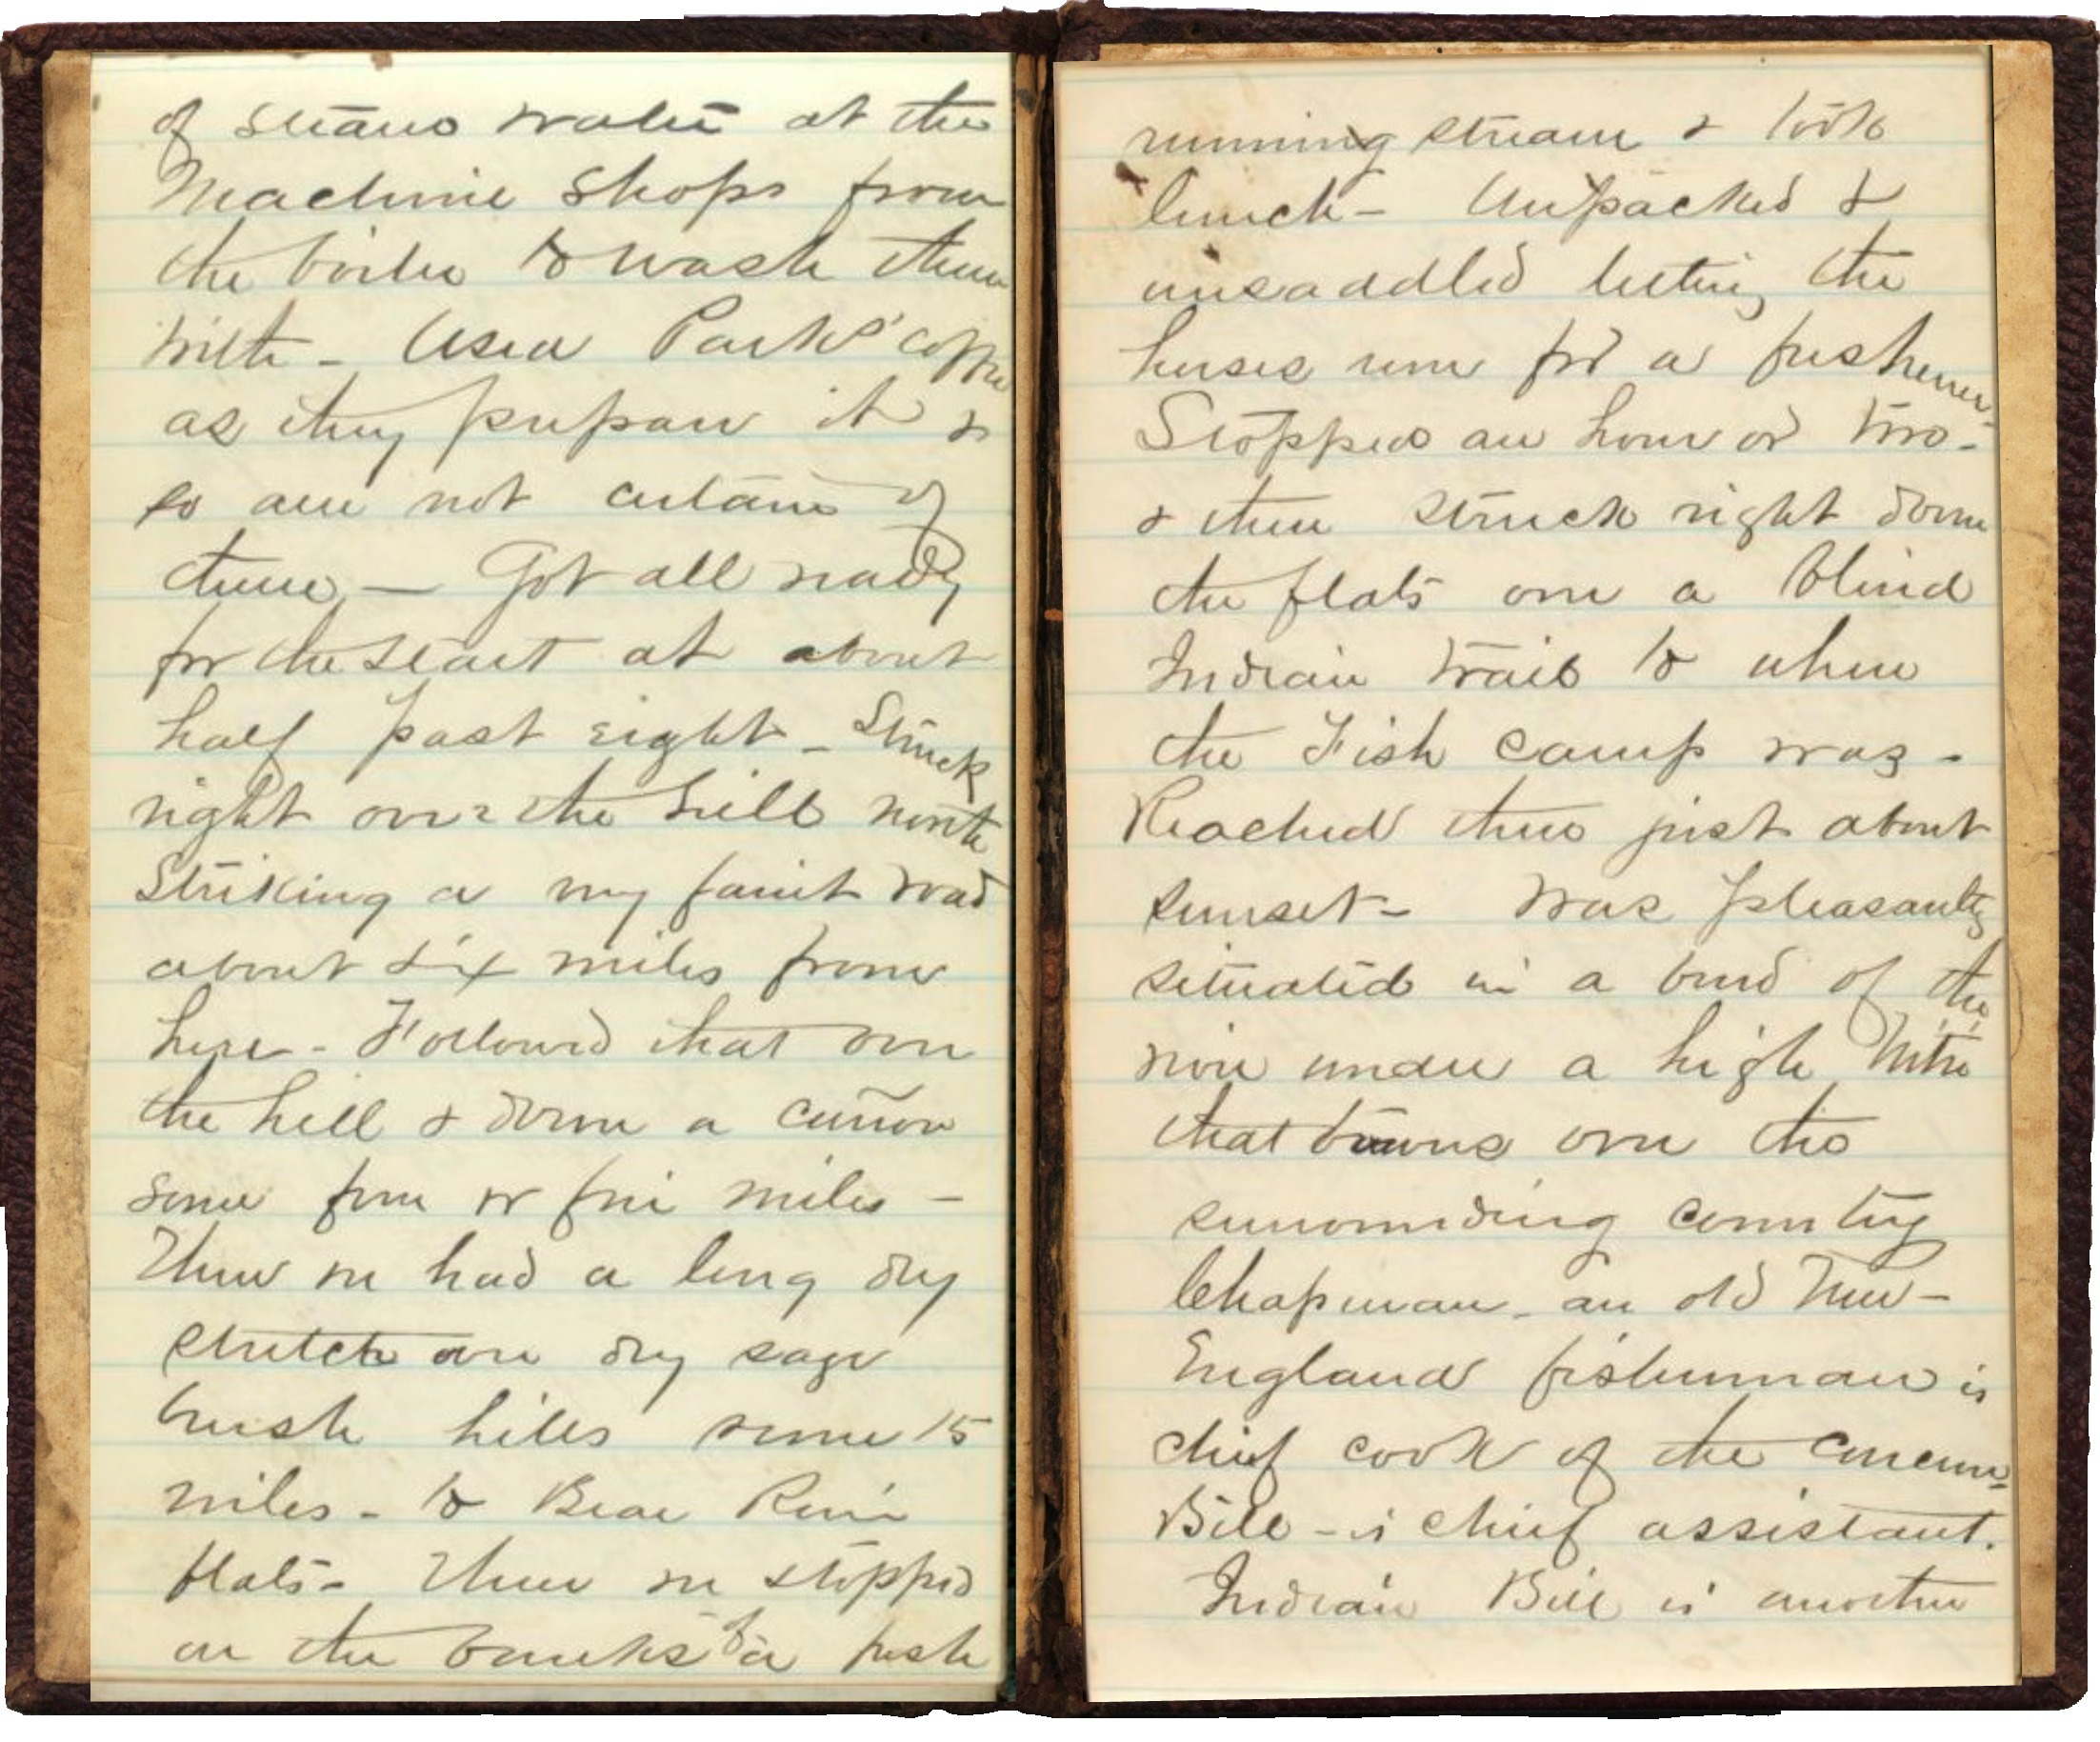 of steam water at the
Machine Shops from
the boiler to wash them
with - Used Parks' coffee
as they prepare it &
so am not certain of
them, — Got all ready
for the start at about
half past eight - Struck
right over the hill north
Striking a very faint road
about six miles from
here - Followed that over
the hill & down a cañon
some four or five miles -
Then we had a long dry
stretch over dry sage
brush hills some 15
miles - to Bear River
flats - Then we stopped
on the banks of a fresh
running stream & took
lunch - Unpacked &
unsaddled letting the
horses run for a freshener
Stopped an hour or two -
& then struck right down
the flats over a blind
Indian trail to where
the Fish Camp was -
Reached there just about
sunset - Was pleasantly
situated in a bend of the
river under a high butte
that towers over the
surrounding country
Chapman - an old New -
England fisherman is
chief cook of the concern -
Bill - is chief assistant.
Indian Bill is another